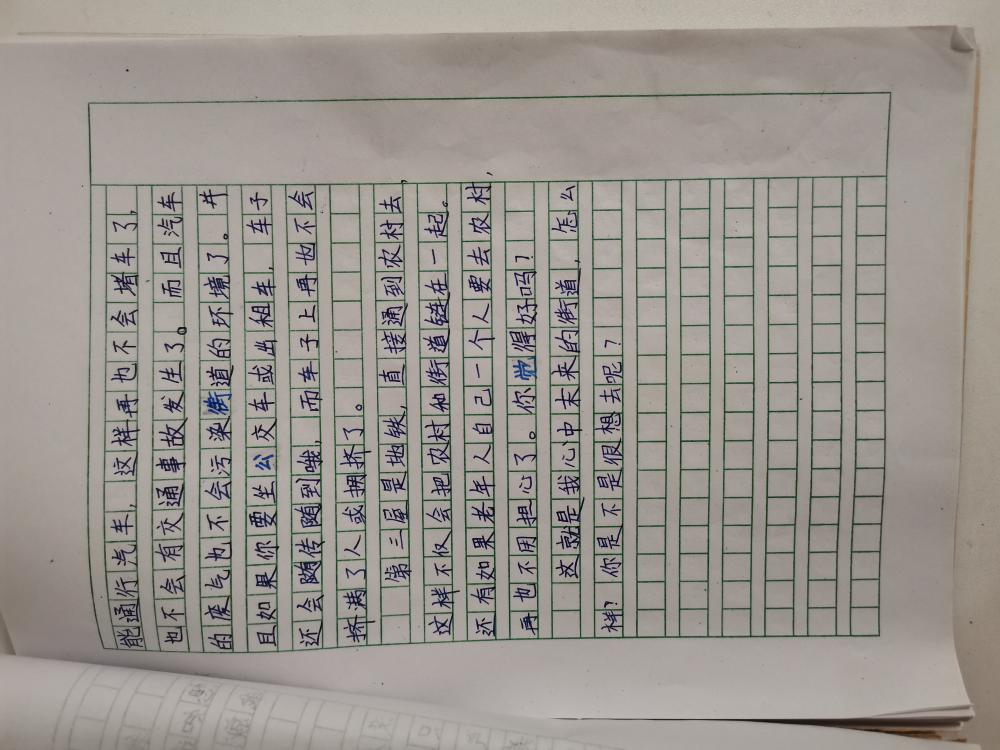 能通行汽车，这样再也不会堵车了，
也不会有交通事故发生了。而且汽车
的废气也不会污染街道的环境了。并
且如果你要坐公交车或出租车，车子
还会随传随到哦，而车子上再也不会
挤满了人或拥挤了。
第三层是地铁，直接通到农村去，
这样不仅会把农村和街道链在一起。
还有如果老年人自己一个人要去农村，
再也不用担心了。你觉得好吗？
这就是我心中末来的街道，怎么
样？你是不是很想去呢？